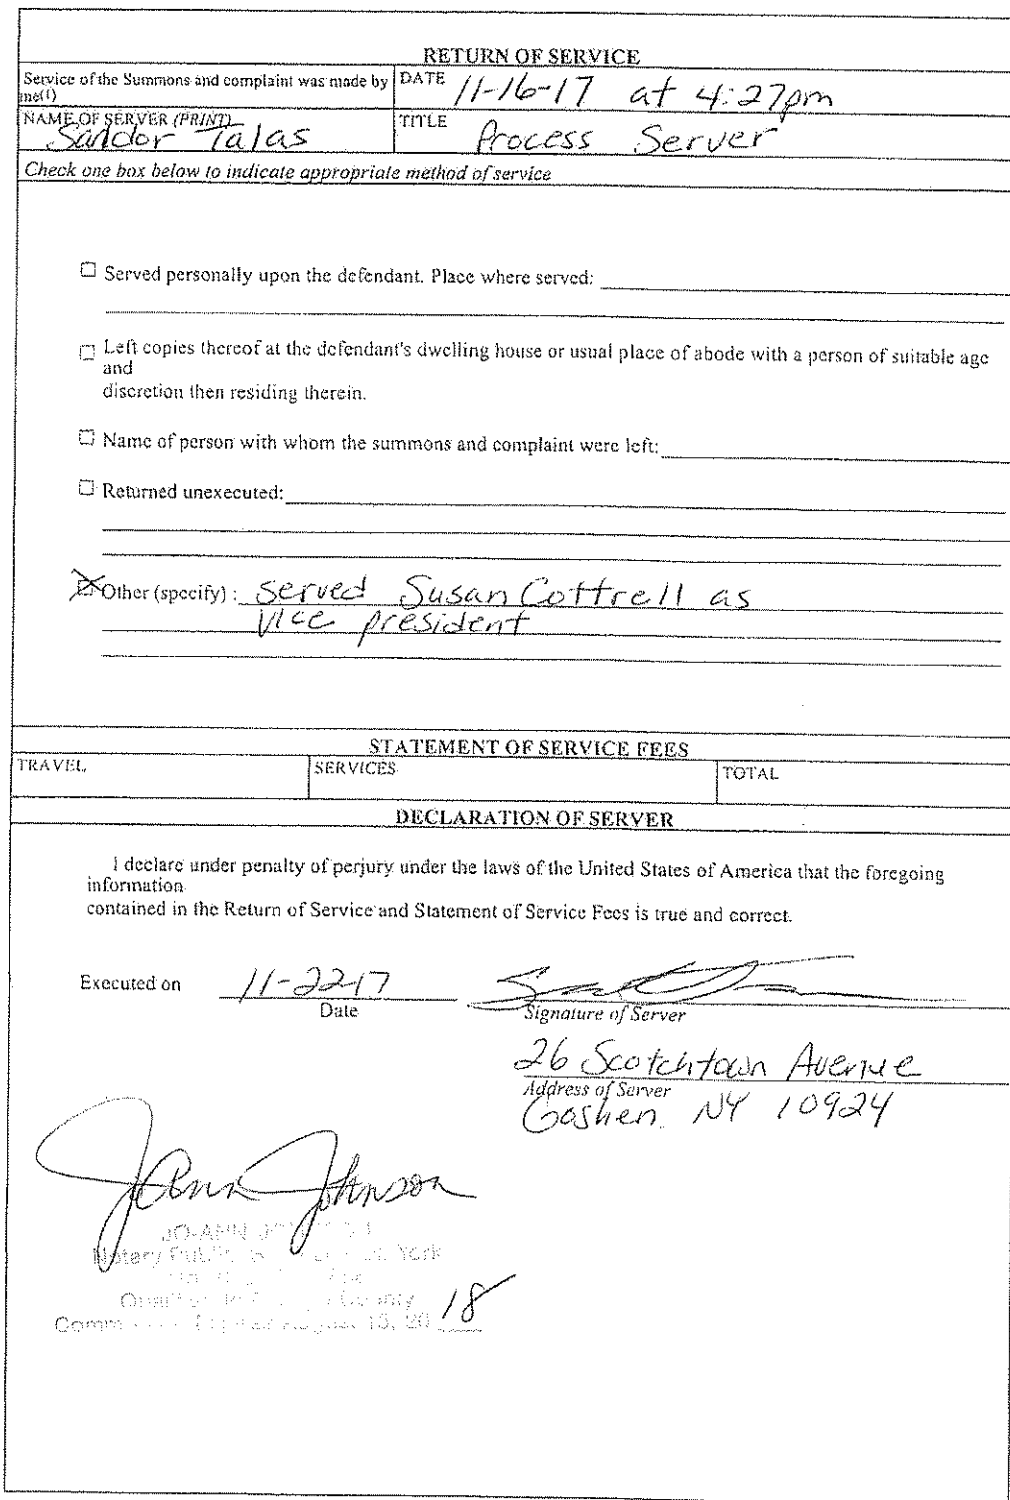 RETURN OF SERVICE
Service of the Summons and complaint was made by me(1)
DATE 11-16-17 at 4:27pm
NAME OF SERVER (PRINT)
Sandor Talas
TITLE
Process Server
Check one box below to indicate appropriate method of service
☐ Served personally upon the defendant. Place where served:
☐ Left copies thereof at the defendant's dwelling house or usual place of abode with a person of suitable age
and
discretion then residing therein.
☐ Name of person with whom the summons and complaint were left:
☐ Returned unexecuted:
☒ Other (specify) : served Susan Cottrell as
vice president
STATEMENT OF SERVICE FEES
TRAVEL
SERVICES
TOTAL
DECLARATION OF SERVER
I declare under penalty of perjury under the laws of the United States of America that the foregoing
information
contained in the Return of Service and Statement of Service Fees is true and correct.
Executed on 11-22-17
Date
Signature of Server
26 Scotchtown Avenue
Address of Server
Goshen, NY 10924
JoAnn Johnson
JO-ANN
Notary Public York
County
August 15, 20 18